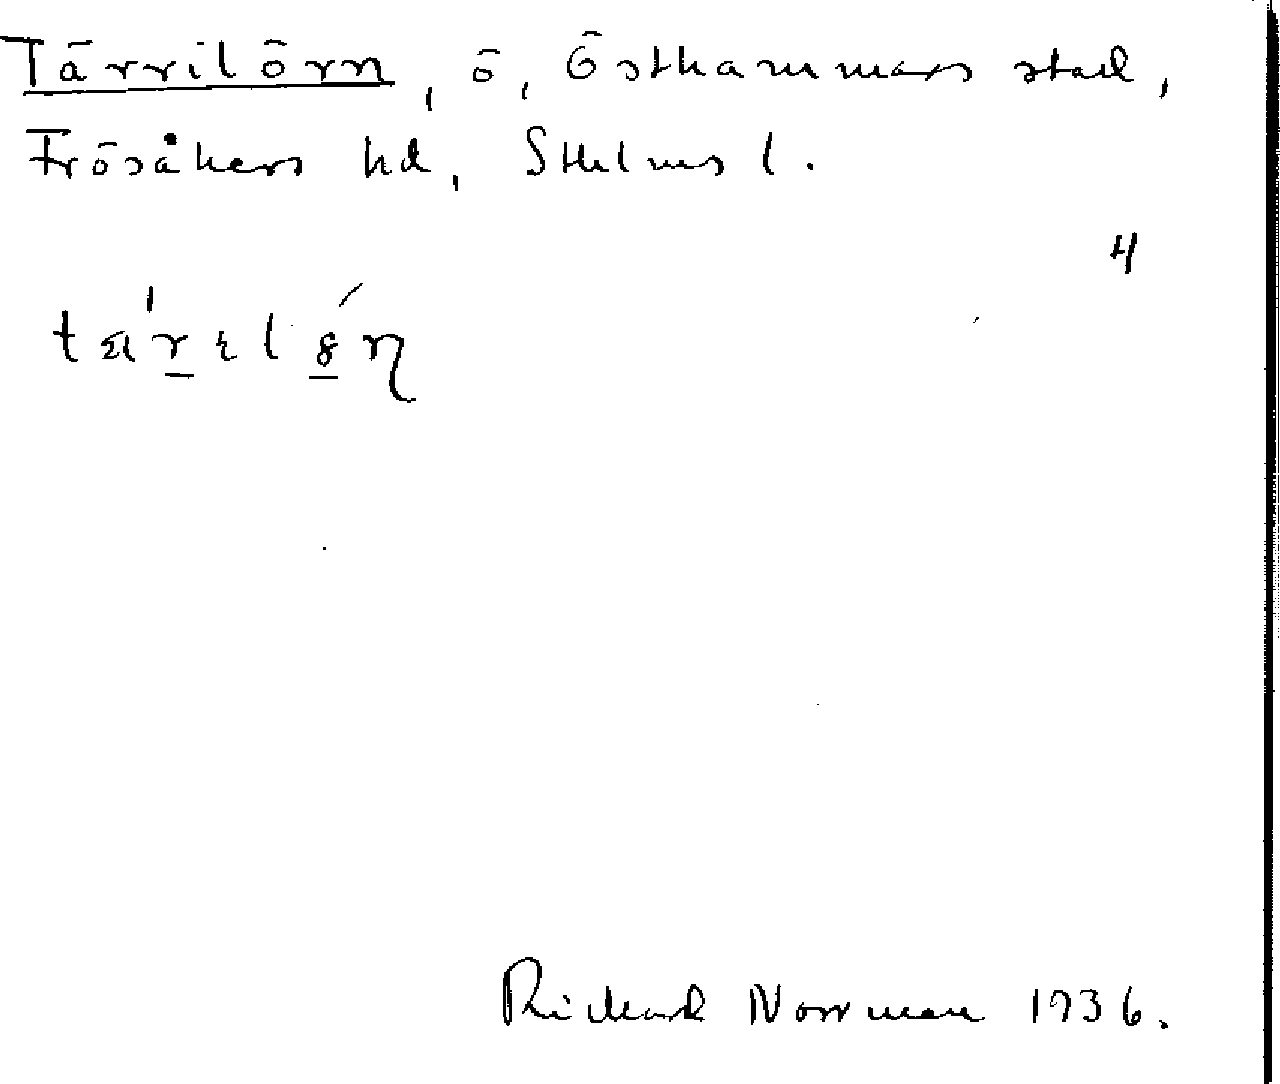 Tärrilörn, ö, Östhammars stad,
Frösåkers hd, Sthlms l.
4
Rickard Norrman 1936.